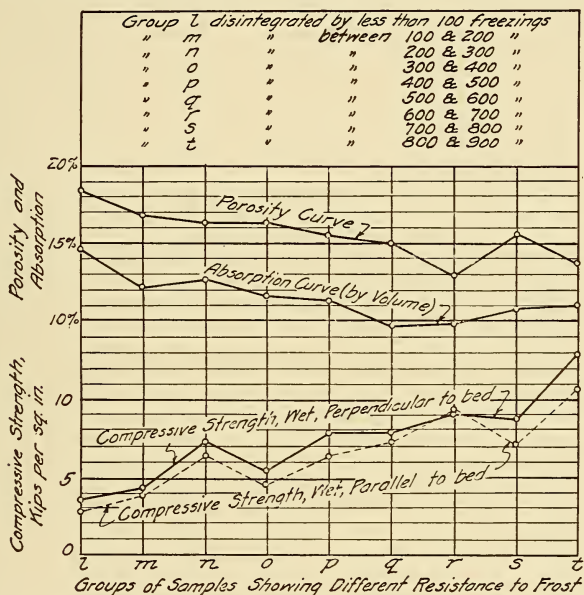 Group l disintegrated by less than 100 freezings
" m " between 100 & 200 "
" n " " 200 & 300 "
" o " " 300 & 400 "
" p " " 400 & 500 "
" q " " 500 & 600 "
" r " " 600 & 700 "
" s " " 700 & 800 "
" t " " 800 & 900 "
20%
Porosity and
Absorption
Porosity Curve
15%
Absorption Curve (by Volume)
10%
Compressive Strength,
Kips per sq. in.
10
Compressive Strength, Wet, Perpendicular to bed
5
Compressive Strength, Wet, Parallel to bed
0
l m n o p q r s t
Groups of Samples Showing Different Resistance to Frost